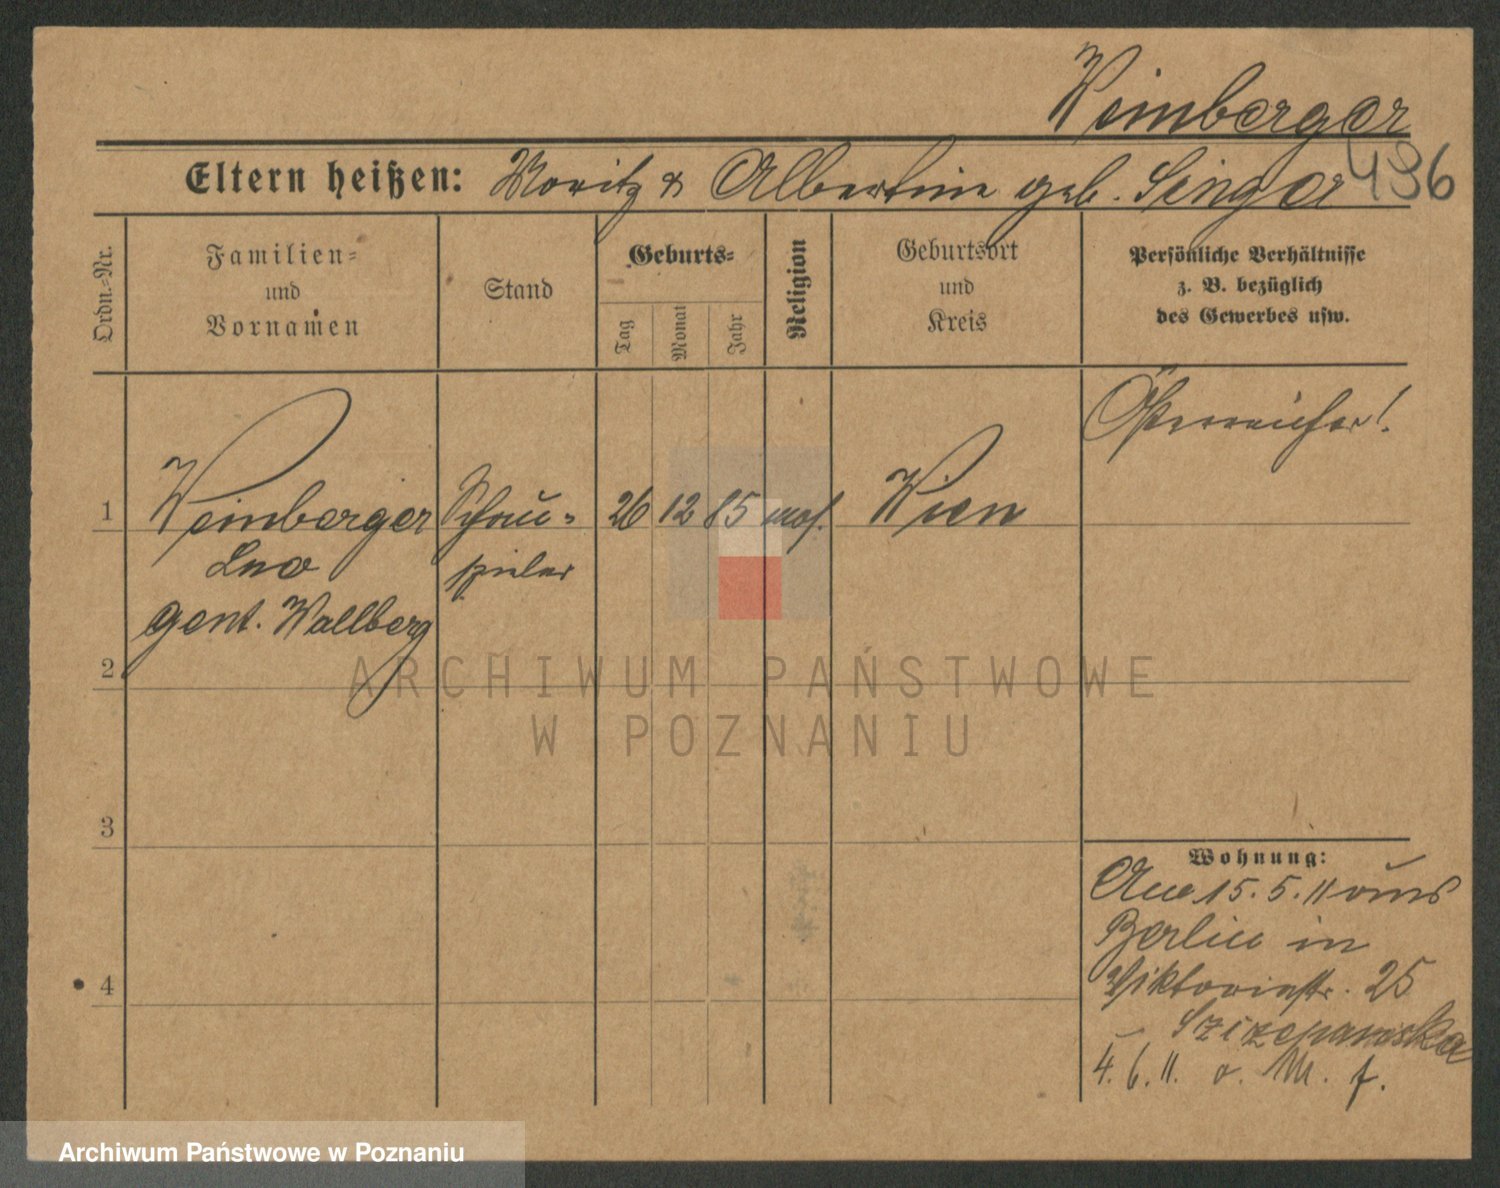 Weinberger
Eltern heißen: Moritz & Albertine geb. Singer 496
Ordn.-Nr.
Familien-
und
Vornamen
Stand
Geburts-
Tag
Monat
Jahr
Religion
Geburtsort
und
Kreis
Persönliche Verhältnisse
z. B. bezüglich
des Gewerbes usw.
Österreicher!
1 Weinberger Schau- 26 12 85 mos. Wien
Leo spieler
gent. Wallberg
2
3
4
Wohnung:
Am 15.5.11 aus
Berlin in
Viktoriastr. 25
4.6.11. o. M. f.
ARCHIWUM PAŃSTWOWE
W POZNANIU
Archiwum Państwowe w Poznaniu